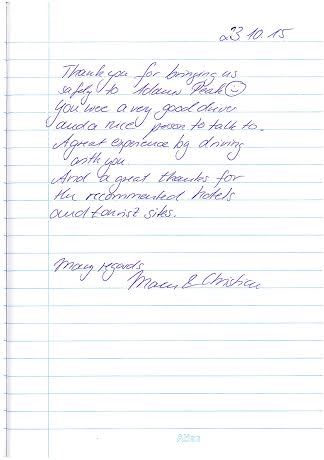 23.10.15
Thank you for bringing us
safely to Adams Peak ☺
You were a very good driver
and a nice person to talk to.
A great experience by driving
with you.
And a great thanks for
the recommended hotels
and tourist sites.
Many regards,
& Christian
Atlas